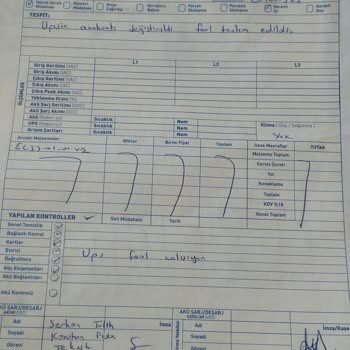 Teknik Servis Müdahale
Müşteri Müdahale
Arıza Çağrısı
Periyodik Bakım
Parçalı Sözleşme
Parçasız Sözleşme
Garanti İçi
Garanti Dışı
TESPİT:
Upsin anakartı değiştirildi faal teslim edildi.
ÖLÇÜMLER
L1 L2 L3
Giriş Gerilimi (VAC)
Giriş Akımı (AAC)
Çıkış Gerilimi (VAC)
Çıkış Akımı (AAC)
Çıkış Peak Akımı (AAC)
Yüklenme Oranı (%)
Akü Şarj Gerilimi (VDC)
Akü Şarj Akımı (ADC)
Akü (Kabin İçi) Sıcaklık Nem
UPS (Kabin İçi) Sıcaklık Nem
Ortam Şartları Sıcaklık Nem
Klima (Güç / Soğutma)
Yok
Arızalı Malzemeler: Miktar Birim Fiyat Toplam Servis Masrafları TUTAR
Malzeme Toplam
Servis Ücreti
Yol
Konaklama
Toplam
KDV %18
Genel Toplam
YAPILAN KONTROLLER Son Müdahale Tarih
Genel Temizlik
Bağlantı Kontrol
Kartlar
Evirici
Doğrultucu
Güç Ekipmanları
Akü Bağlantıları
Akü Kontrolü
Ups faal çalışıyor
AKÜ ŞARJ/DEŞARJ
AKÜ ŞARJ/DEŞARJ
Adı
Soyadı
Görevi
Serkan
İmza
Teknik
Adı
Soyadı
Görevi
İmza/Kaşe